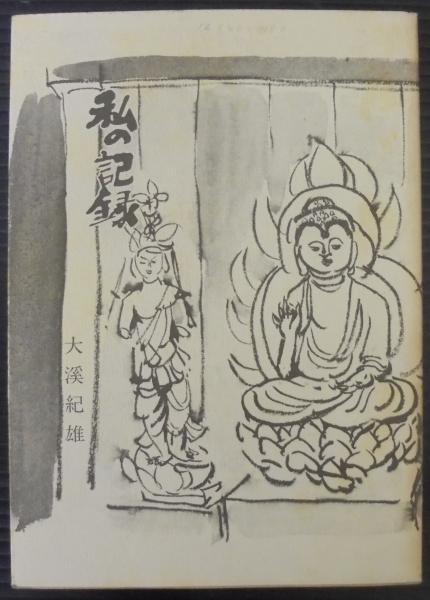 私の記録
大溪紀雄